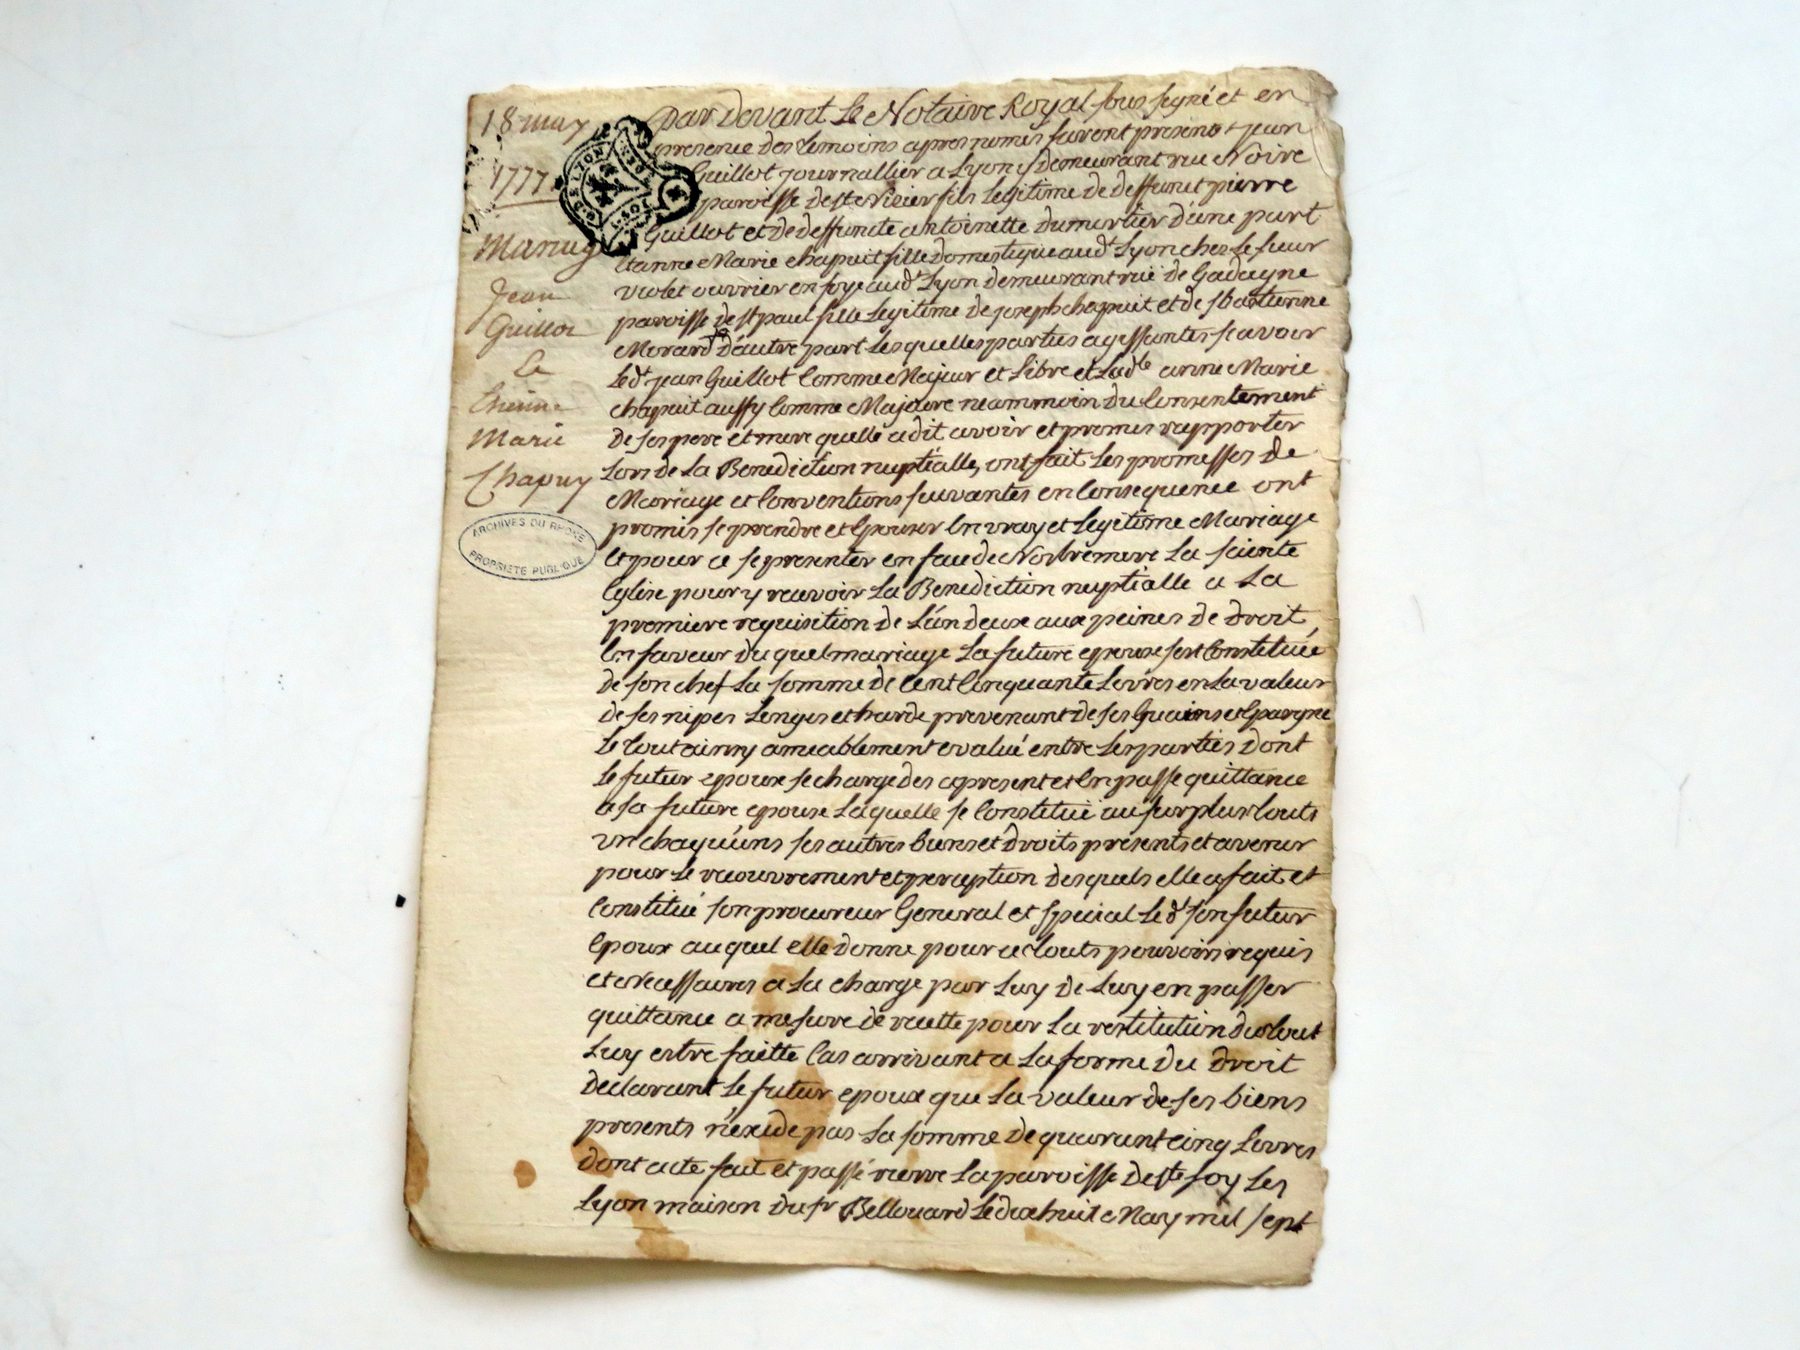 18 may
1777
Mariage
Jean
Guillot
Et
Marie
Chapuy
ARCHIVES DU RHONE
PROPRIETE PUBLIQUE
G. DE LYON
par Devant Le Notaire Royal sous signé et en
presence des temoins apres només furent presents jean
Guillot journallier a Lyon y demeurant rue Noire
paroisse de st Nizier fils Legitime de deffunct pierre
Guillot et de deffuncte antoinette dumortier d'une part
Et anne Marie chapuit fille domestique aud.t Lyon ches le sieur
violet ouvrier en soye aud.t Lyon demeurant rüe de Gadagne
paroisse de st paul fille Legitime de joseph chapuit et de
Morard d'autre part Lesquelles parties agissantes scavoir
Led.t jean Guillot Comme Majeur et Libre et Lad.te anne Marie
chapuit aussy Comme Majeure neammoin du Consentement
de ses pere et mere quelle a dit avoir et promis rapporter
Lors de La Benediction nuptialle, ont fait Les promesses de
Mariage et Conventions suivantes en Consequence ont
promis se prendre et Epouser En vray et Legitime Mariage
Et pour ce se presenter en face de Nostre mere La sainte
Eglise pour y recevoir La Benediction nuptialle a La
premiere requisition de L'ún deux aux peines de droit,
En faveur du quel mariage La future epouse sest Constituée
de son chef La somme de Cent Cinquante Livres en La valeur
de ses nipes Linges et harde provenant de ses Guains et Epargne
Le tout ainsy amicablement evalué entre Les parties dont
Le futur epoux se charge des apresent et En passe quittance
a sa future epouse Laquelle se Constitüe au surplus touts
un chaqu'uns ses autres biens et Droits presents et avenir
pour Le recouvrement et perception desquels elle a fait et
Constitué son procureur General et special Le d.t son futur
Epoux auquel elle donne pour ce touts pouvoirs requis
et Necessaires a La charge par Luy de Luy en passer
quittance a mesure de recette pour La restitution du tout
Luy estre faitte Cas arrivant a La forme du Droit
declarant Le futur epoux que La valeur de ses biens
presents n'éxcede pas La somme de quarant cinq Livres
dont acte fait et passé riere La paroisse de ste foy Les
Lyon maison du sr Bellouard Le dixhuit May mil sept